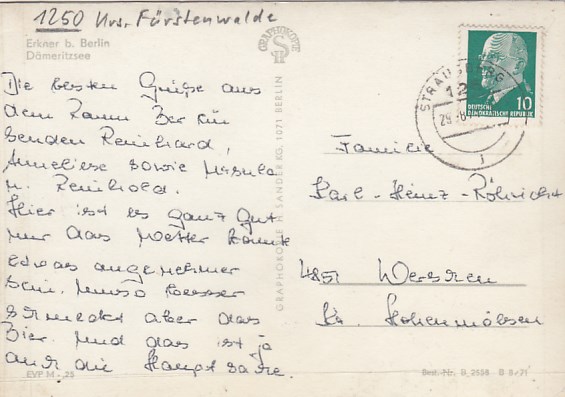 1250 Krs. Fürstenwalde
Erkner b. Berlin
Dämeritzsee
Die besten Grüße aus
dem Raum Berlin
senden Reinhard,
Anneliese sowie Ursula
u. Reinhold.
Hier ist es ganz gut
nur das Wetter könnte
etwas angenehmer
sein. Umso besser
schmeckt aber das
Bier. Und das ist ja
auch die Hauptsache.
EVP M -,25
GRAPHOKOPIE
GRAPHOKOPIE H. SANDER KG. 1071 BERLIN
STRAUSBERG
10
DEUTSCHE
DEMOKRATISCHE REPUBLIK
Familie
Karl-Heinz Röhricht
4851 Werschen
Kr. Hohenmölsen
Best.-Nr. B 2558 B 8/71